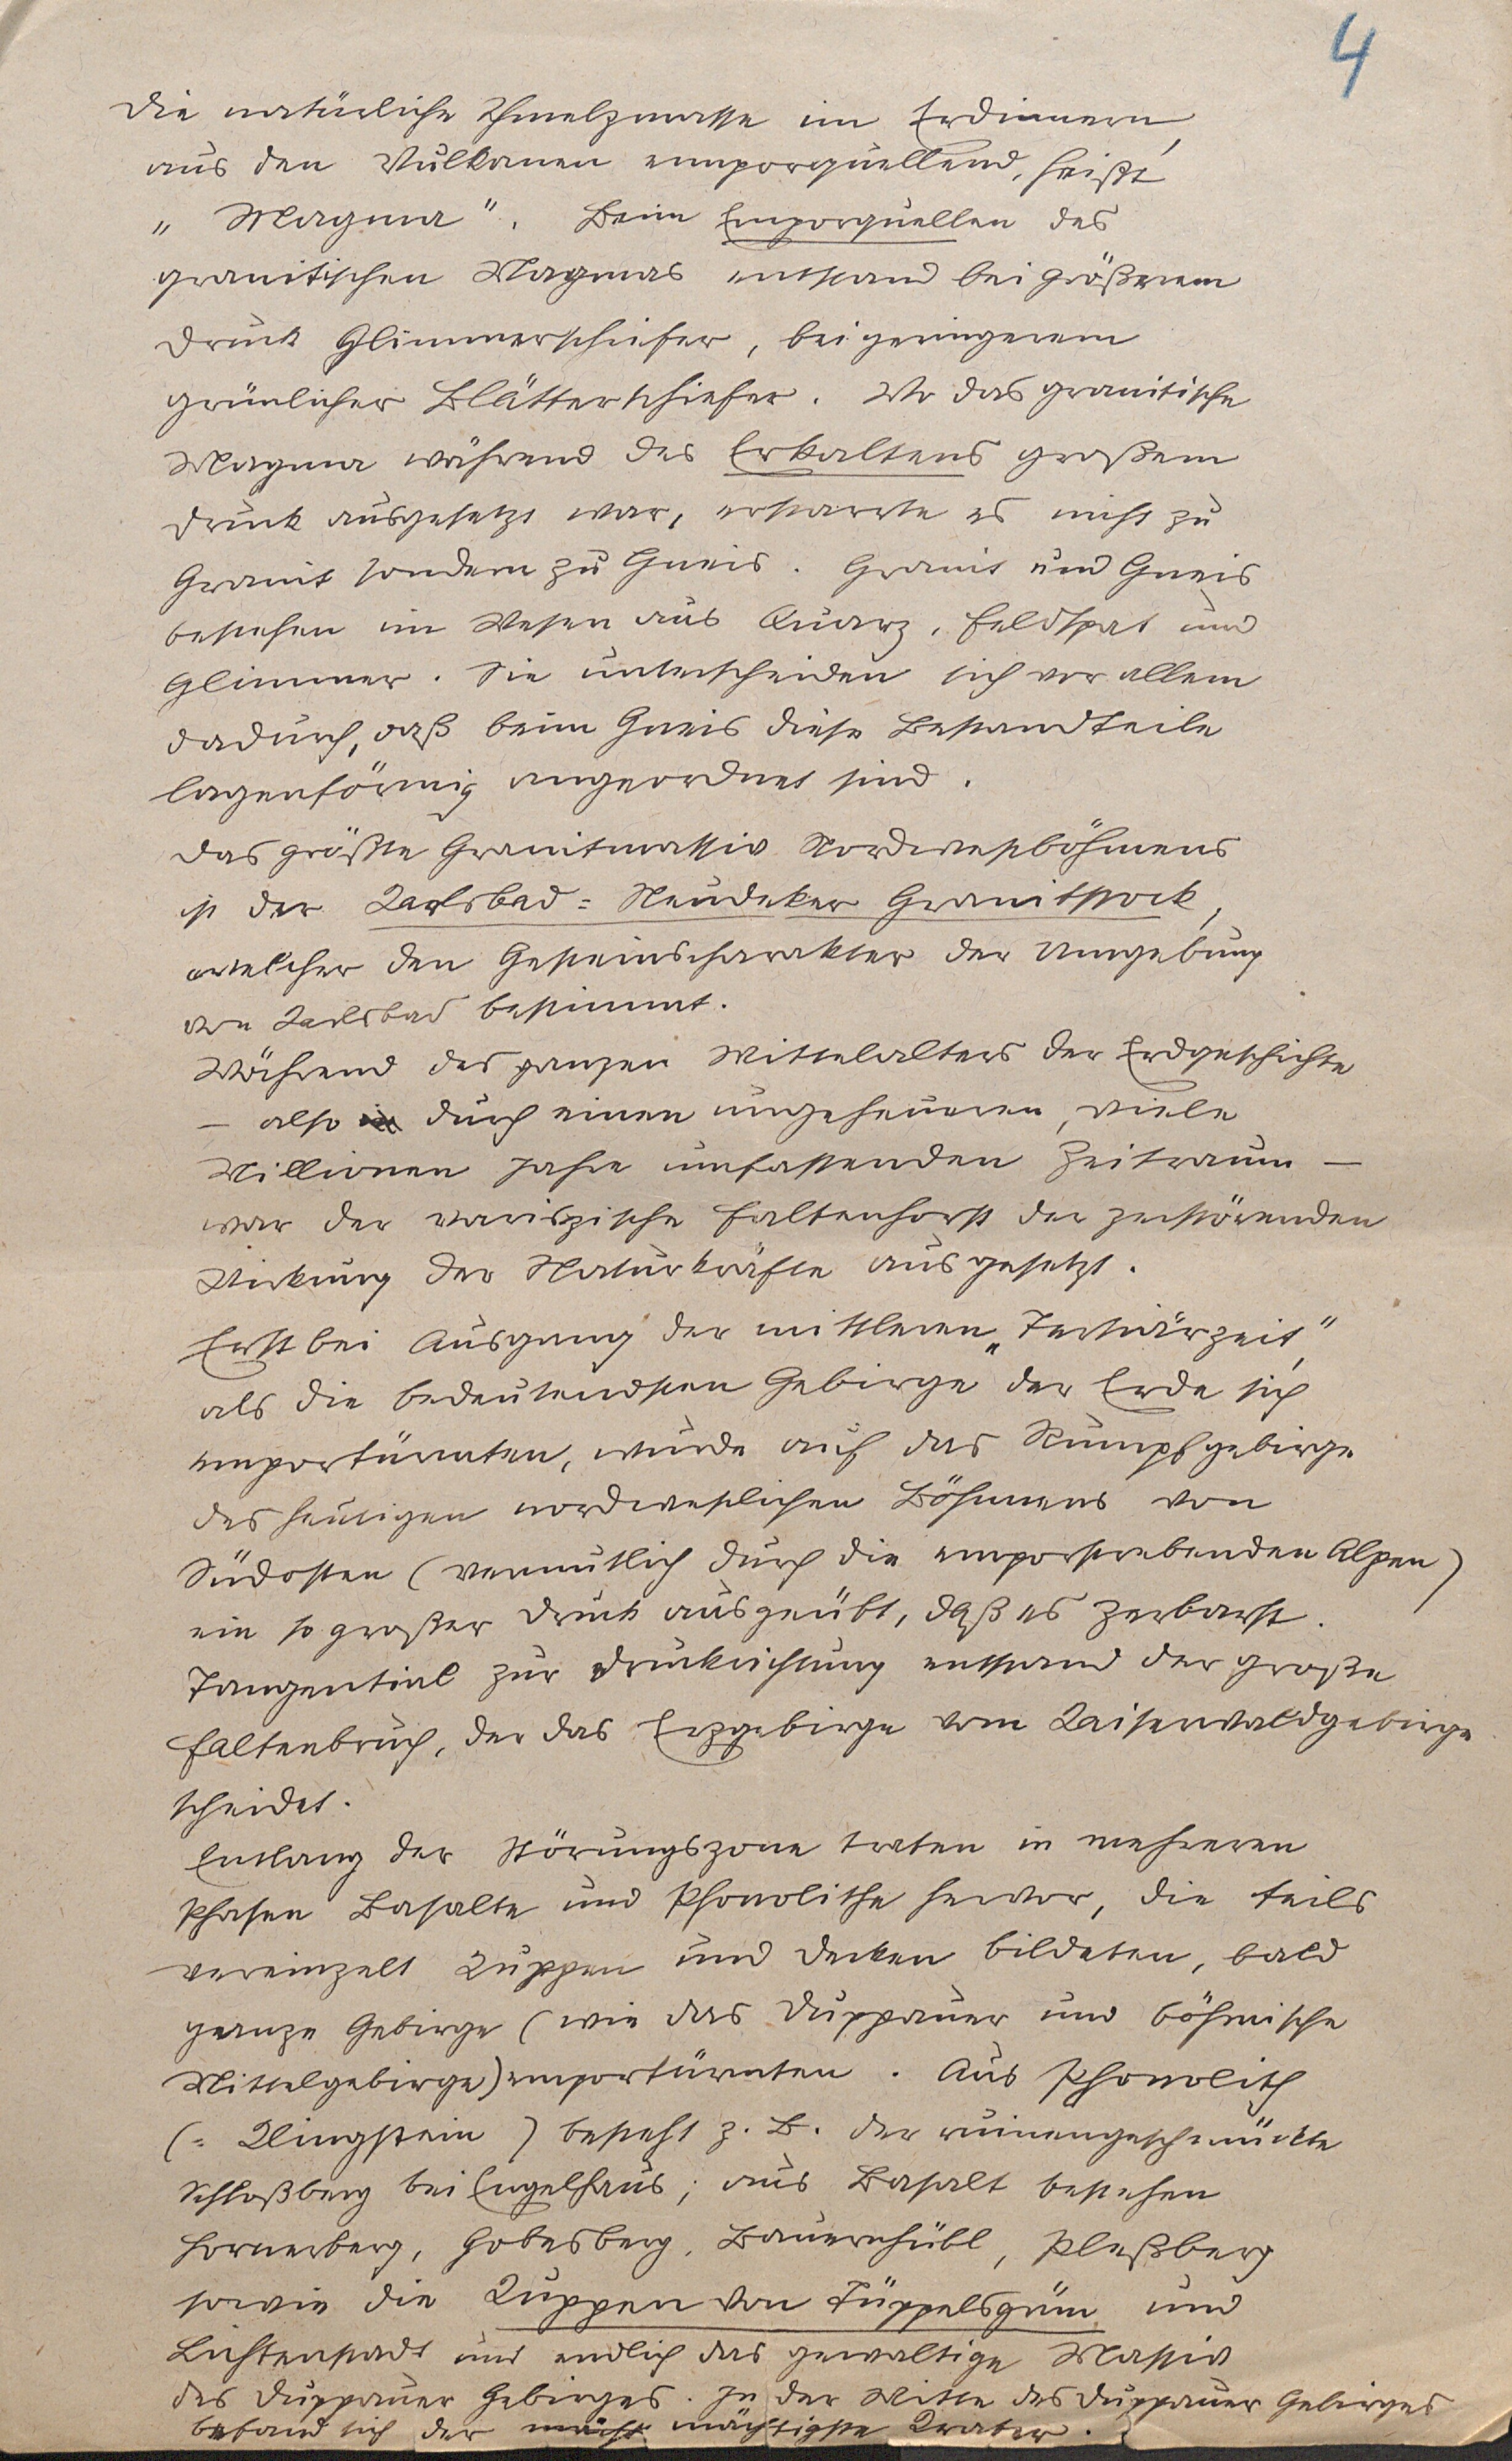 4
Die natürliche Schmelzmasse im Erdinnern,
aus den Vulkanen emporquellend, heißt
„Magma". Beim Emporquellen des
granitischen Magmas entstand bei größerem
Druck Glimmerschiefer, bei geringerem
grünlicher Blätterschiefer. Wo das granitische
Magma während des Erkaltens großem
Druck ausgesetzt war, erstarrte es nicht zu
Granit sondern zu Gneis. Granit und Gneis
bestehen im Wesen aus Quarz, Feldspat und
Glimmer. Sie unterscheiden sich vor allem
dadurch, daß beim Gneis diese Bestandteile
lagenförmig angeordnet sind.
Das größte Granitmassiv Nordwestböhmens
ist der Karlsbad=Neudeker Granitstock,
welcher den Gesteinscharakter der Umgebung
von Karlsbad bestimmt.
Während des ganzen Mittelalters der Erdgeschichte
– also in durch einen ungeheueren, viele
Millionen Jahre umfassenden Zeitraum –
war der variszische Faltenhorst der zerstörenden
Wirkung der Naturkräfte ausgesetzt.
Erst bei Ausgang der mittleren „Tertiärzeit",
als die bedeutendsten Gebirge der Erde sich
emportürmten, wurde auf das Rumpfgebirge
des heutigen nordwestlichen Böhmens von
Südosten (vermutlich durch die emporstrebenden Alpen)
ein so großer Druck ausgeübt, daß es zerbarst.
Tangential zur Druckrichtung entstand der große
Faltenbruch, der das Erzgebirge vom Kaiserwaldgebirge
scheidet.
Entlang der Störungszone traten in mehreren
Phasen Basalte und Phonolithe hervor, die teils
vereinzelt Kuppen und Decken bildeten, bald
ganze Gebirge (wie das Duppauer und böhmische
Mittelgebirge) emportürmten. Aus Phonolith
(= Klingstein) besteht z. B. der ruinengeschmückte
Schloßberg bei Engelhaus; aus Basalt bestehen
Hornerberg, Hobesberg, Bauernhübl, Pleßberg
sowie die Kuppen von Tüppelsgrün und
Lichtenstadt und endlich das gewaltige Massiv
des Duppauer Gebirges. In der Mitte des Duppauer Gebirges
befand sich der mächt mächtigste Krater.